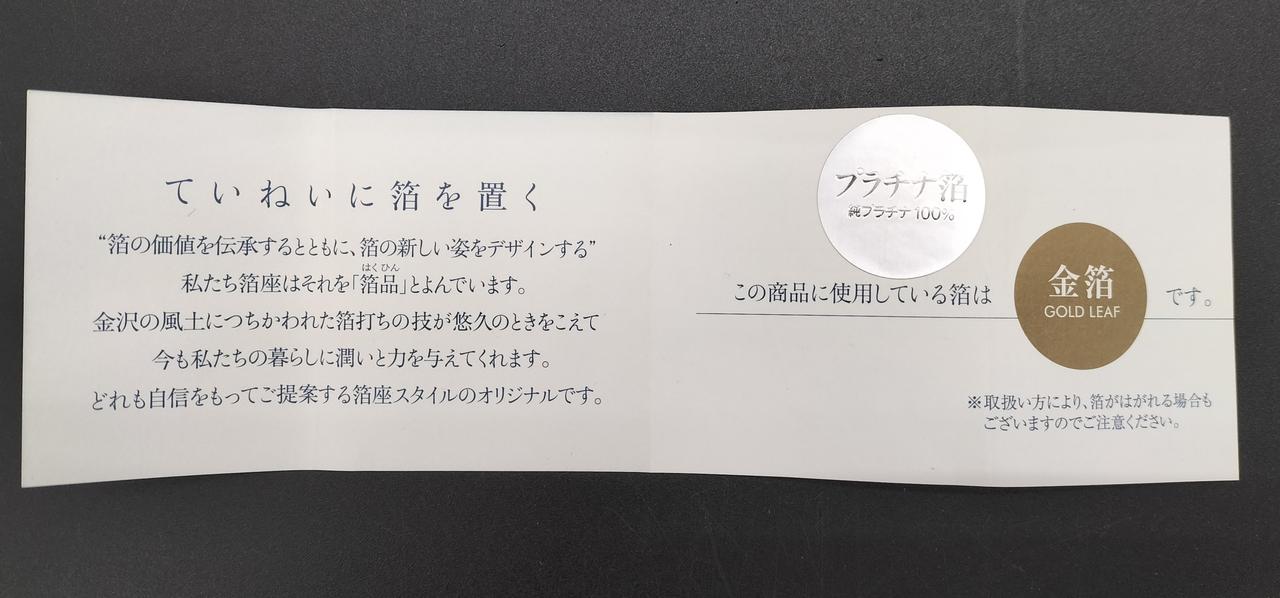 ていねいに箔を置く
“箔の価値を伝承するとともに、箔の新しい姿をデザインする”
はくひん
私たち箔座はそれを「箔品」とよんでいます。
金沢の風土につちかわれた箔打ちの技が悠久のときをこえて
今も私たちの暮らしに潤いと力を与えてくれます。
どれも自信をもってご提案する箔座スタイルのオリジナルです。
プラチナ箔
純プラチナ100%
この商品に使用している箔は
金箔
GOLD LEAF
です。
※取扱い方により、箔がはがれる場合も
ございますのでご注意ください。